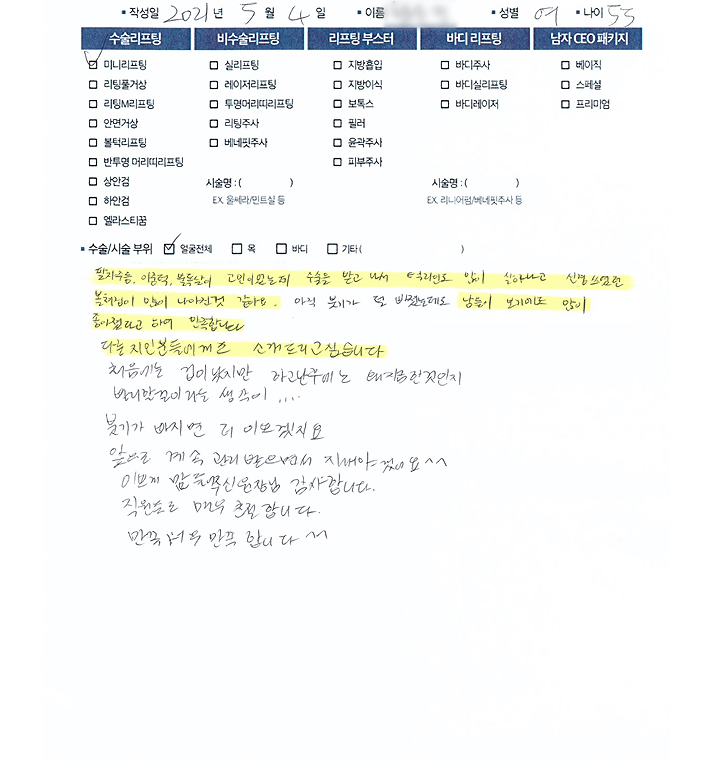 ▪ 작성일 2021 년 5 월 4 일 ▪ 이름 ▪ 성별 여 ▪ 나이 55
수술리프팅 비수술리프팅 리프팅 부스터 바디 리프팅 남자 CEO 패키지
미니리프팅 실리프팅 지방흡입 바디주사 베이직
리팅풀거상 레이저리프팅 지방이식 바디실리프팅 스페셜
리팅M리프팅 투명머리띠리프팅 보톡스 바디레이저 프리미엄
안면거상 리팅주사 필러
볼턱리프팅 베네핏주사 윤곽주사
반투명 머리띠리프팅 피부주사
상안검 시술명 : ( ) 시술명 : ( )
하안검 EX. 울쎄라/민트실 등 EX. 리니어펌/베네핏주사 등
엘라스티꿈
▪ 수술/시술 부위 얼굴전체 목 바디 기타 ( )
팔자주름, 이중턱, 불독살이 고민이었는데 수술을 받고 나서 턱라인도 많이 살아나고 신경쓰였던
볼처짐이 많이 나아진것 같아요. 아직 붓기가 덜 빠졌는데도 남들이 보기에도 많이
좋아졌다고 하여 만족합니다
다른 지인분들에게도 소개드리고싶습니다
처음에는 겁이났지만 하고난후에는 왜지금한것인지
빨리할걸이라는 생각이 ....
붓기가 빠지면 더 이쁘겠지요
앞으로 계속 관리 받으면서 지내야 겠어요 ^^
이쁘게 만들어주신원장님 감사합니다.
직원분들 매우 친절합니다.
만족 너무 만족 합니다 ^^